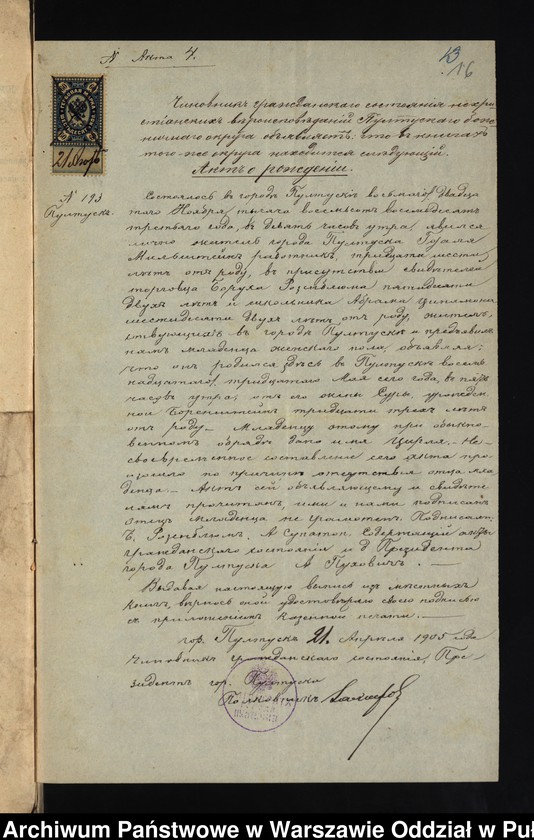 N Акта 4.
13
16
21 Апр.
Чиновникъ гражданскаго состоянія нехри-
стіанскихъ вѣроисповѣданій Пултускаго
округа объявляетъ, что въ книгахъ
того-же округа находится слѣдующій.
Актъ о рожденіи.
N 193
Пултускъ.
Состоялось въ городѣ Пултускѣ восьмаго Двадца
таго Ноября, тысяча восемьсотъ восемьдесятъ
третьяго года, въ девять часовъ утра, явился
лично житель города Пултуска
работникъ, тридцати шести
лѣтъ отъ роду, въ присутствіи свидѣтелей
торговца Боруха Розенблюма пятидесяти
двухъ лѣтъ и школьника Абрама
шестидесяти двухъ лѣтъ отъ роду, житель-
ствующихъ въ городѣ Пултускѣ и предъявилъ
намъ младенца женскаго пола, объявляя;
что онъ родился здѣсь въ Пултускѣ восем-
надцатаго тридцатаго Мая сего года, въ пять
часовъ утра, отъ его жены Суры, урожден-
ной тридцати трехъ лѣтъ
отъ роду. Младенцу этому при обыкно-
венномъ обрядѣ дано имя Цирля. Не-
своевременное составленіе сего акта про-
изошло по причинѣ отсутствія отца мла-
денца. Актъ сей объявляющему и свидѣте-
лямъ прочитанъ, ими и нами подписанъ
отецъ младенца не грамотенъ. Подписали:
Б. Розенблюмъ, А Содержащій акты
гражданскаго состоянія и д Президента
города Пултуска А Пуховичъ.
Выдавая настоящую выпись изъ мѣстныхъ
книгъ, вѣрность оной удостовѣряю своею подписью
съ приложеніемъ казенной печати.
гор. Пултускъ 21 Апрѣля 1905 года
Чиновникъ гражданскаго состоянія, Пре-
зидентъ гор. Пултуска
Полковникъ
Archiwum Państwowe w Warszawie Oddział w Puł